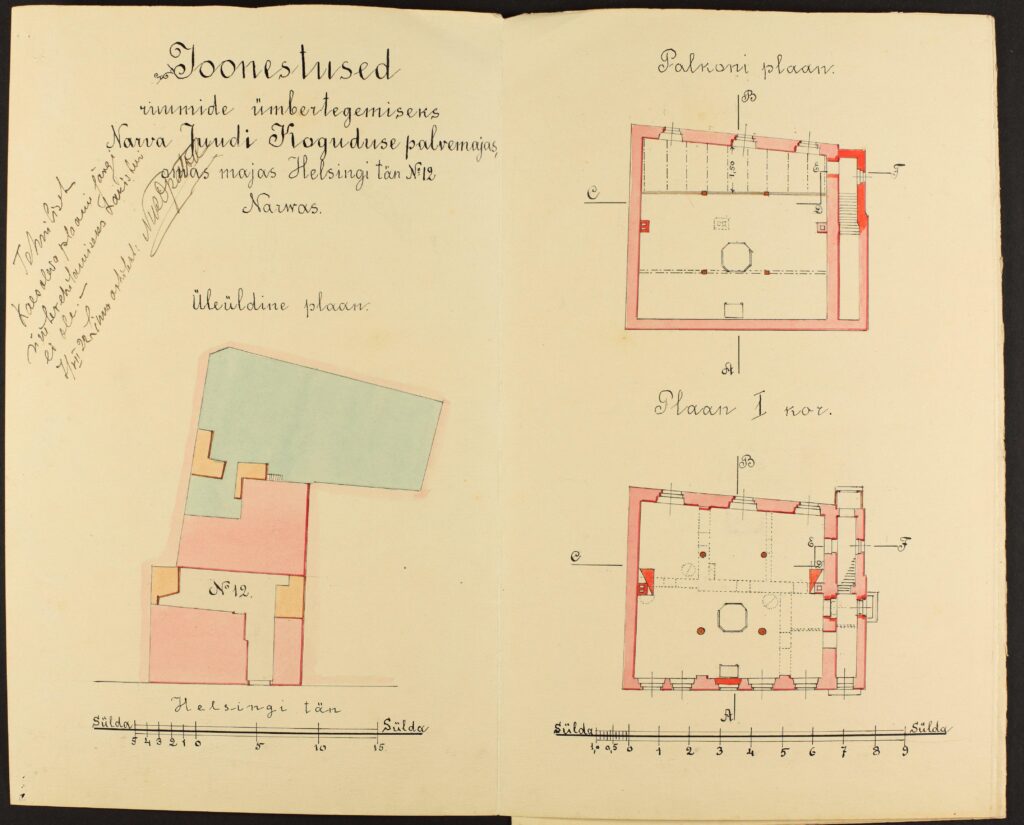 Joonestused
ruumide ümbertegemiseks
Narva Juudi Koguduse palvemajas,
majas Helsingi tän № 12
Narwas.
Tehnilisel
ei ole. –
Üleüldine plaan.
№ 12.
Helsingi tän
Sülda Sülda
5 4 3 2 1 0 5 10 15
Palkoni plaan.
B
1,50
E F
C
A
Plaan I kor.
B
E F
C
A
Sülda Sülda
1,0 0,5 0 1 2 3 4 5 6 7 8 9